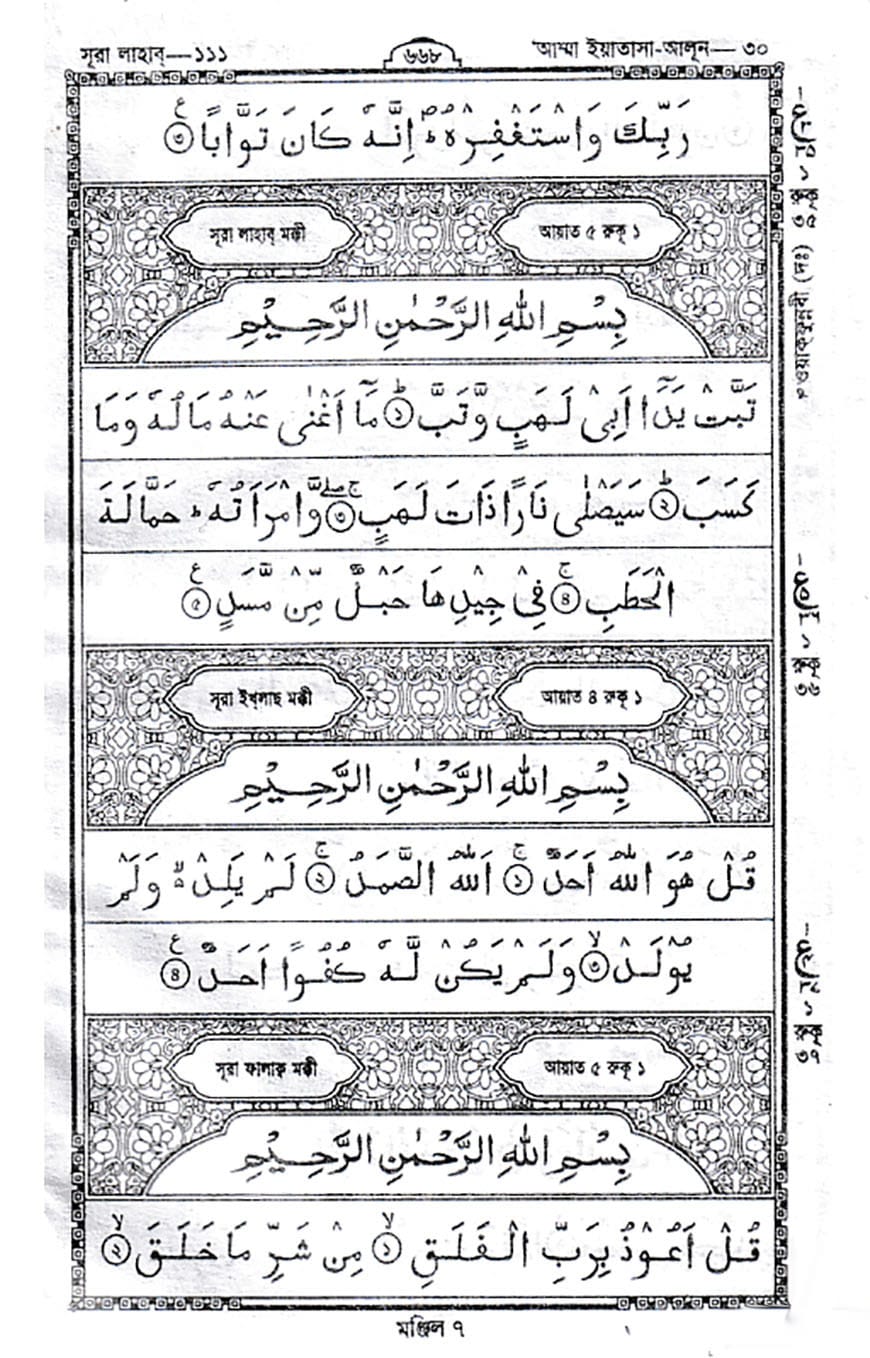 সূরা লাহাব্—১১১
৬৬৮
আম্মা ইয়াতাসা-আলূন— ৩০
رَبِّكَ وَاسْتَغْفِرْهُ ؕ اِنَّهٗ كَانَ تَوَّابًا ۝٣
সূরা লাহাব্ মক্কী
আয়াত ৫ রুকূ ১
بِسْمِ اللّٰهِ الرَّحْمٰنِ الرَّحِيْمِ
تَبَّتْ يَدَاۤ اَبِىْ لَهَبٍ وَّتَبَّ ؕ ۝١ مَاۤ اَغْنٰى عَنْهُ مَالُهٗ وَمَا
كَسَبَ ؕ ۝٢ سَيَصْلٰى نَارًا ذَاتَ لَهَبٍ ۝٣ۚۖ وَّامْرَاَتُهٗ ؕ حَمَّالَةَ
الْحَطَبِ ۚ ۝٤ فِىْ جِيْدِهَا حَبْلٌ مِّنْ مَّسَدٍ ۝٥
সূরা ইখ্লাছ মক্কী
আয়াত ৪ রুকূ ১
بِسْمِ اللّٰهِ الرَّحْمٰنِ الرَّحِيْمِ
قُلْ هُوَ اللّٰهُ اَحَدٌ ۚ ۝١ اَللّٰهُ الصَّمَدُ ۚ ۝٢ لَمْ يَلِدْ ۙ وَلَمْ
يُوْلَدْ ۙ ۝٣ وَلَمْ يَكُنْ لَّهٗ كُفُوًا اَحَدٌ ۝٤
সূরা ফালাক্ব মক্কী
আয়াত ৫ রুকূ ১
بِسْمِ اللّٰهِ الرَّحْمٰنِ الرَّحِيْمِ
قُلْ اَعُوْذُ بِرَبِّ الْفَلَقِ ۙ ۝١ مِنْ شَرِّ مَا خَلَقَ ۙ ۝٢
মঞ্জিল ৭